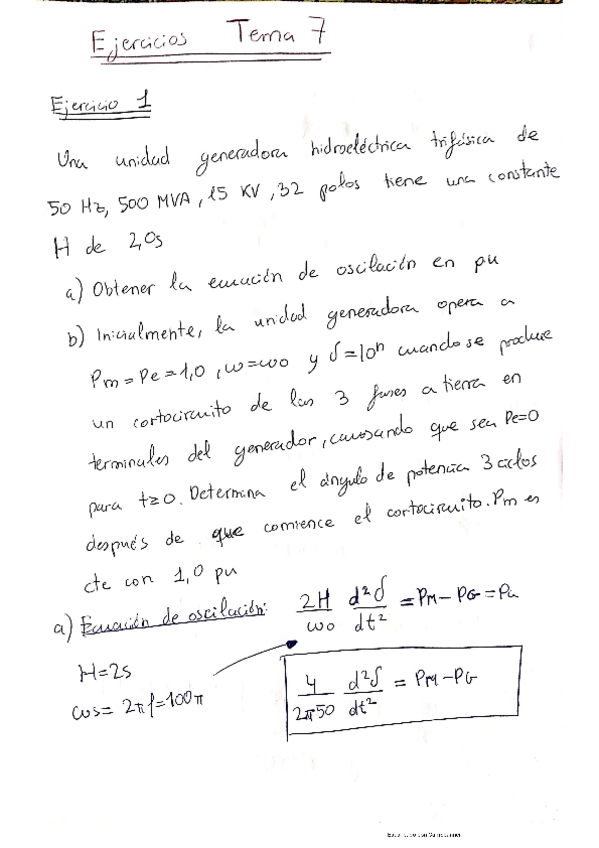 Ejercicios Tema 7
Ejercicio 1
Una unidad generadora hidroeléctrica trifásica de
50 Hz, 500 MVA, 15 KV, 32 polos tiene una constante
H de 2,0s
a) Obtener la ecuación de oscilación en pu
b) Inicialmente, la unidad generadora opera a
Pm = Pe = 1,0, ω=ωo y δ=10º cuando se produce
un cortocircuito de las 3 fases a tierra en
terminales del generador, causando que sea Pe=0
para t≥0. Determina el ángulo de potencia 3 ciclos
después de que comience el cortocircuito. Pm es
cte con 1,0 pu
a) Ecuación de oscilación: 2H/ωo d²δ/dt² = PM - PG = Pa
H=2s
ωs= 2πf=100π
4/2π50 d²δ/dt² = PM - PG